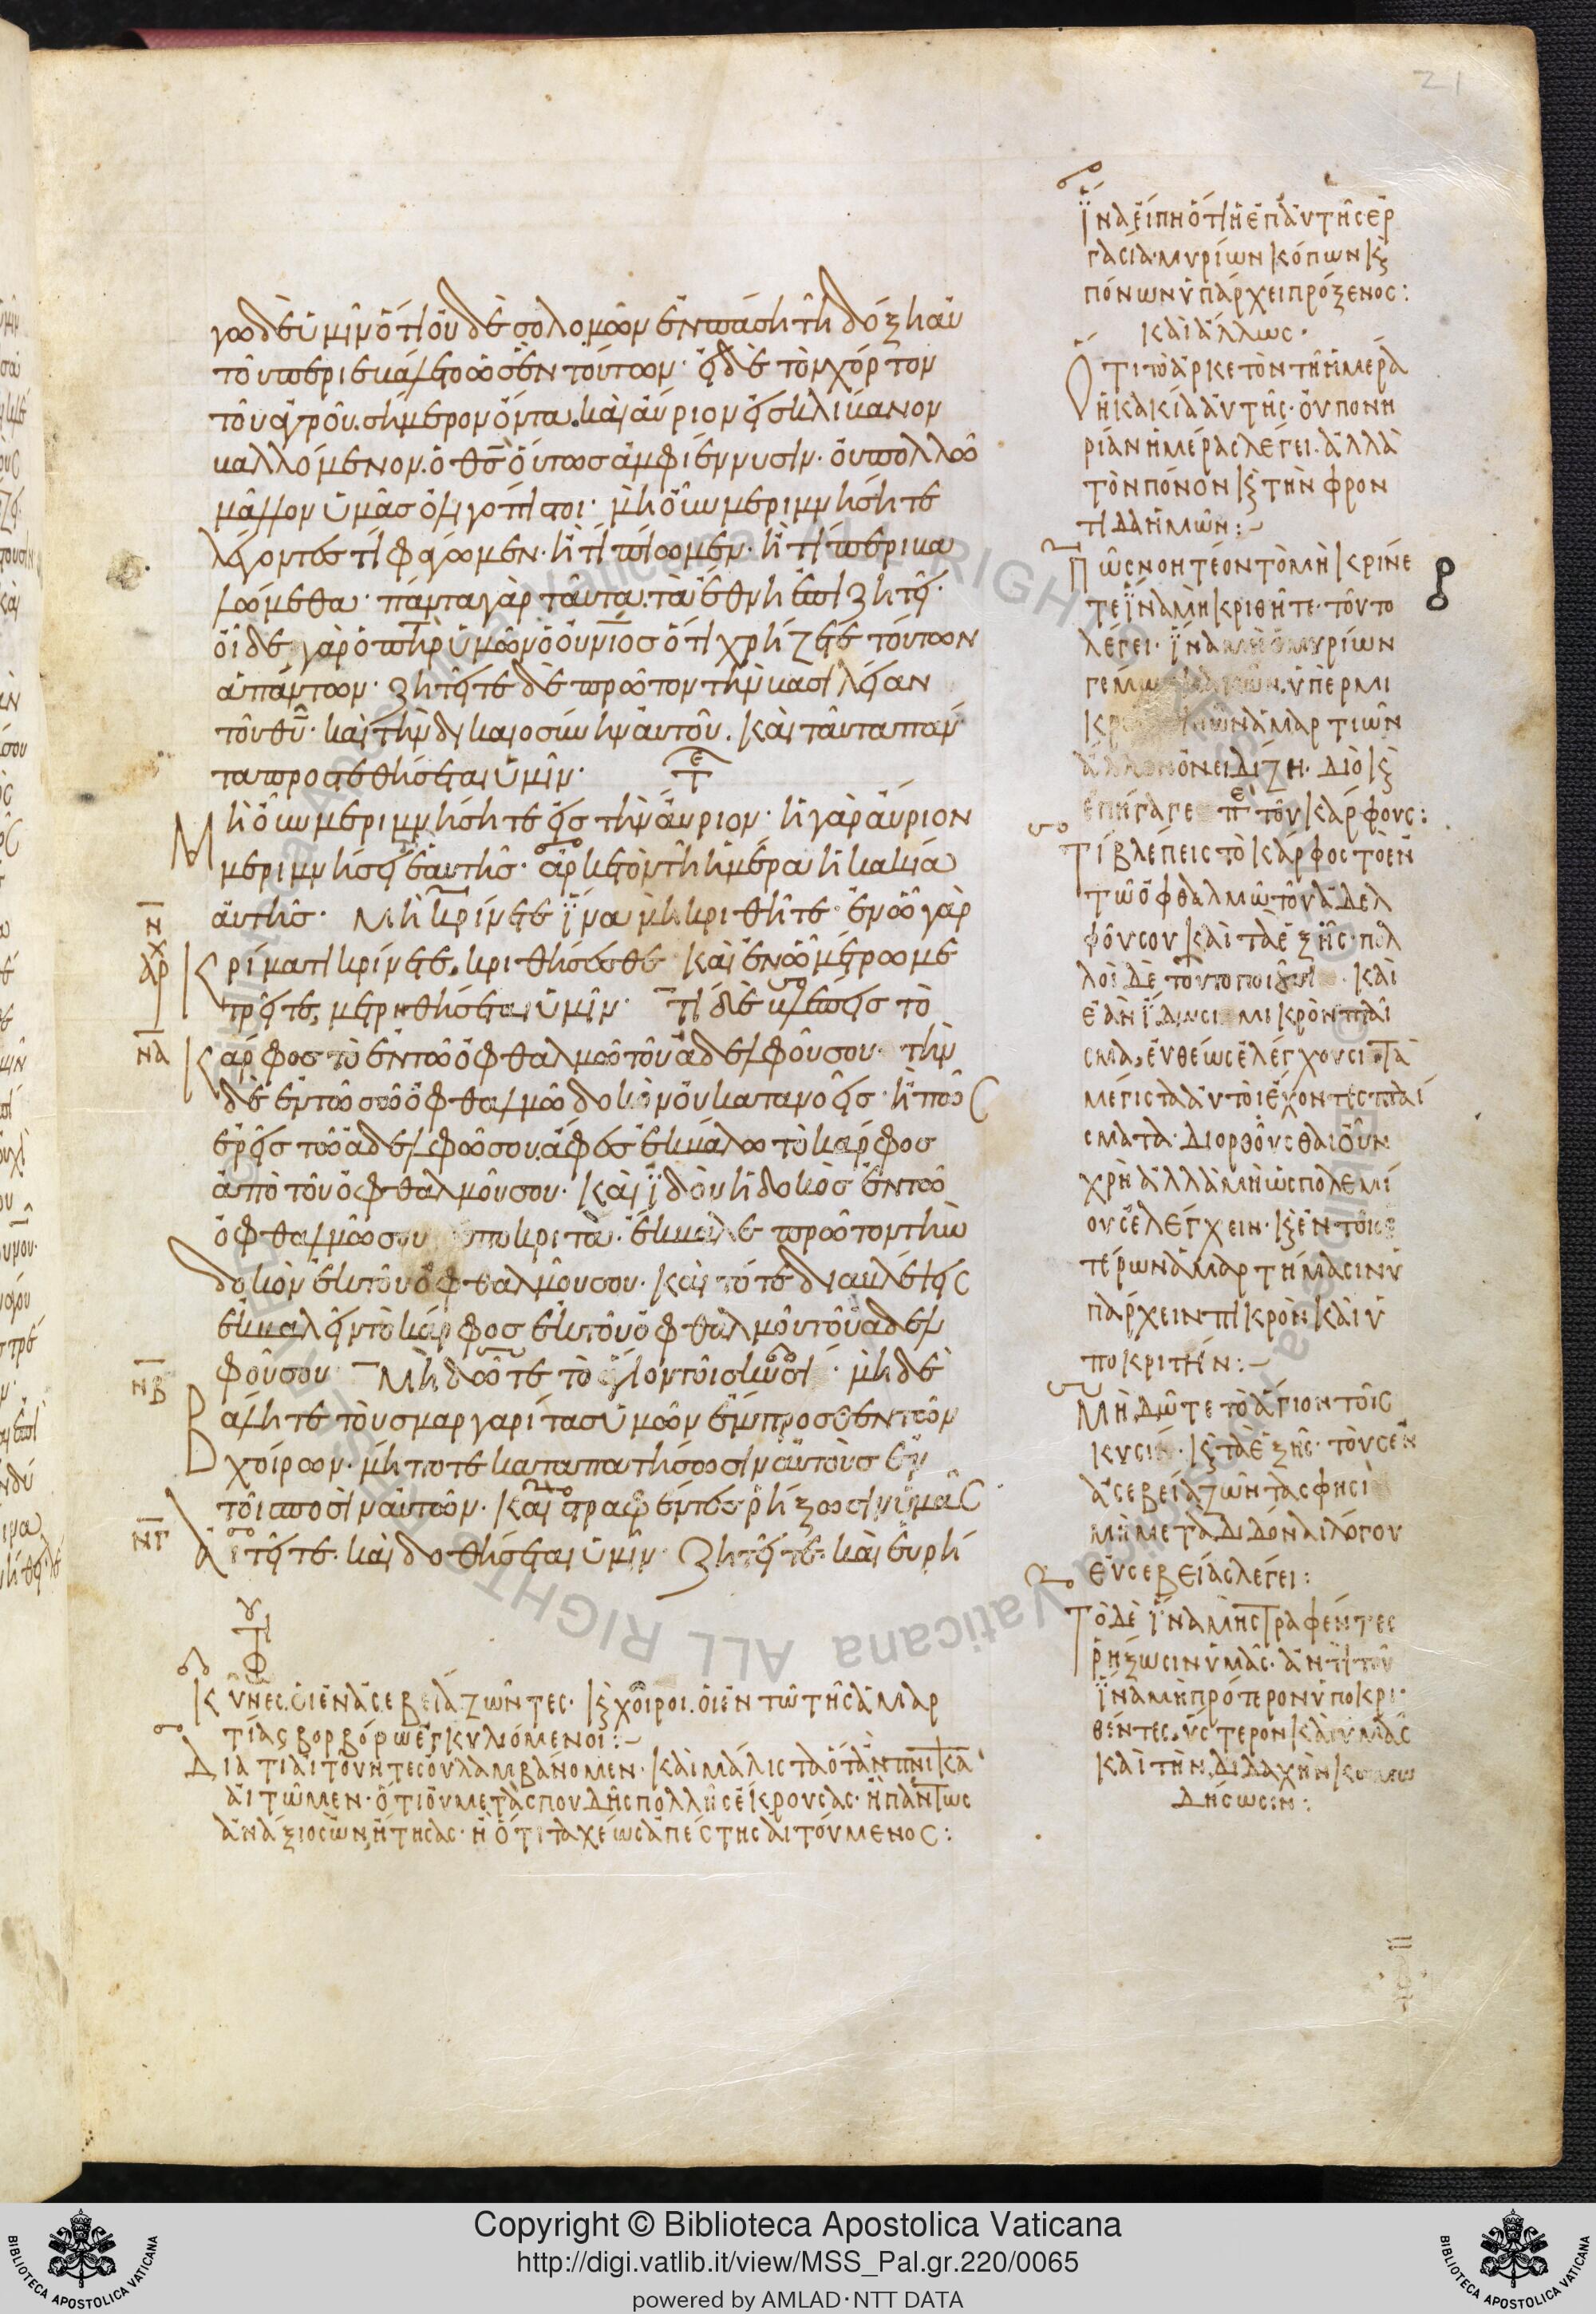 21
γω δὲ ὑμῖν ὅτι οὐδὲ σολομῶν ἐν πάσῃ τῇ δόξῃ αὐ
τοῦ περιεβάλετο ὡς ἓν τούτων· εἰ δὲ τὸν χόρτον
τοῦ ἀγροῦ. σήμερον ὄντα. καὶ αὔριον εἰς κλίβανον
βαλλόμενον. ὁ θς οὕτως ἀμφιέννυσιν. οὐ πολλῶ
μᾶλλον ὑμᾶς ὀλιγόπιστοι· μὴ οὖν μεριμνήσητε
λέγοντες τί φάγωμεν· ἢ τί πίωμεν· ἢ τί περιβα
λώμεθα· πάντα γὰρ ταῦτα. τὰ ἔθνη ἐπιζητεῖ·
οἶδε γὰρ ὁ πηρ ὑμῶν ὁ οὐνιος ὅτι χρήζετε τούτων
ἁπάντων· ζητεῖτε δὲ πρῶτον τὴν βασιλείαν
τοῦ θυ· καὶ τὴν δικαιοσύνην αὐτοῦ. καὶ ταῦτα πάν
τα προστεθήσεται ὑμῖν·
Μὴ οὖν μεριμνήσητε εἰς τὴν αὔριον· ἡ γὰρ αὔριον
μεριμνήσει ἑαυτῆς· ἀρκετὸν τῇ ἡμέρα ἡ κακία
αὐτῆς· Μὴ κρίνετε ἵνα μὴ κριθῆτε· ἐν ᾧ γὰρ
Κρίματι κρίνετε, κριθήσεσθε καὶ ἐν ᾧ μέτρω με
τρεῖτε, μετρηθήσεται ὑμῖν· τί δὲ βλέπεις τὸ
Κάρφος τὸ ἐν τῶ ὀφθαλμῶ τοῦ ἀδελφοῦ σου· τὴν
δὲ ἐν τῶ σῶ ὀφθαλμῶ δοκὸν οὐ κατανοεῖς· ἢ πῶς
ἐρεῖς τῶ ἀδελφῶ σου. ἄφες ἐκβάλω τὸ κάρφος
ἀπὸ τοῦ ὀφθαλμοῦ σου· καὶ ἰδοὺ ἡ δοκὸς ἐν τῶ
ὀφθαλμῶ σου ὑποκριτὰ· ἔκβαλε πρῶτον τὴν
δοκὸν ἐκ τοῦ ὀφθαλμοῦ σου· καὶ τότε διαβλέψεις
ἐκβαλεῖν τὸ κάρφος ἐκ τοῦ ὀφθαλμοῦ τοῦ ἀδελ
φοῦ σου Μὴ δῶτε τὸ ἅγιον τοῖς κυσί· μὴ δὲ
Βάλητε τοὺς μαργαρίτας ὑμῶν ἔμπροσθεν τῶν
χοίρων· μή ποτε καταπατήσωσιν αὐτοὺς ἐν
τοῖς ποσὶν αὐτῶν· καὶ στραφέντες ῥήξωσιν ὑμᾶς
Αἰτεῖτε· καὶ δοθήσεται ὑμῖν· Ζητεῖτε· καὶ εὑρή
Ν
ΑΡΧ
ΝΑ
ΝΒ
ΝΓ
Κύνες. οἱ ἐν ἀσεβεία ζῶντες· κ χοῖροι. οἱ ἐν τῶ τῆς ἁμαρ
τίας βορβόρω ἐγκυλιόμενοι:
Διατί αἰτοῦντες οὐ λαμβάνομεν· καὶ μάλιστα ὅταν πνικὰ
αἰτῶμεν· ὅτι οὐ μετὰ σπουδῆς πολλῆς ἔκρουσας· ἢ πάντως
ἀνάξιος ὢν ᾔτησας· ἢ ὅτι ταχέως ἀπέστης αἰτούμενος:
ἵνα εἴπη ὅτι ἡ ἐπ' αὐτῆς ἐρ
γασία. μυρίων κόπων κ
πόνων ὑπάρχει πρόξενος:
καὶ ἄλλως·
Ὅτι τὸ ἀρκετὸν τῆ ἡμέρα
ἡ κακία αὐτῆς· οὐ πονη
ρίαν ἡμέρας λέγει. ἀλλὰ
τὸν πόνον κ τὴν φρον
τίδα ἡμῶν:
Πῶς νοητέον τὸ μὴ κρίνε
τε ἵνα μὴ κριθῆτε· τοῦτο
λέγει· ἵνα μὴ ὁ μυρίων
γέμων κακῶν. ὑπὲρ μι
κρῶν ἁμαρτιῶν
ἄλλον ὀνειδίζη· διὸ κ
ἐπήγαγε πε τοῦ κάρφους:
Τί βλέπεις τὸ κάρφος τὸ ἐν
τῶ ὀφθαλμῶ τοῦ ἀδελ
φοῦ σου καὶ τὰ ἑξῆς· πολ
λοὶ δὲ τοῦτο ποιοῦσι. καὶ
ἐὰν ἴδωσι μικρὸν πταῖ
σμα, εὐθέως ἐλέγχουσι. τὰ
μέγιστα αὐτοὶ ἔχοντες πταί
σματα· διορθοῦσθαι οὖν
χρὴ ἀλλὰ μὴ ὡς πολεμί
ους ἐλέγχειν· κ ἐν τοῖς
τέρων ἁμαρτήμασιν ὑ
πάρχειν πικρὸν καὶ ὑ
ποκριτήν:
Μὴ δῶτε τὸ ἅγιον τοῖς
κυσίν· κ τὰ ἑξῆς· τοὺς ἐν
ἀσεβεία ζῶντας φησὶ
μὴ μεταδιδόναι λόγου
εὐσεβείας λέγει:
Τὸ δὲ ἵνα μὴ στραφέντες
ῥήξωσιν ὑμᾶς· ἀντὶ τοῦ
ἵνα μὴ πρότερον ὑποκρι
θέντες. ὕστερον καὶ ὑμᾶς
καὶ τὴν διδαχὴν κωμω
δήσωσιν:
Copyright © Biblioteca Apostolica Vaticana
http://digi.vatlib.it/view/MSS_Pal.gr.220/0065
powered by AMLAD·NTT DATA
BIBLIOTECA APOSTOLICA VATICANA
BIBLIOTECA APOSTOLICA VATICANA